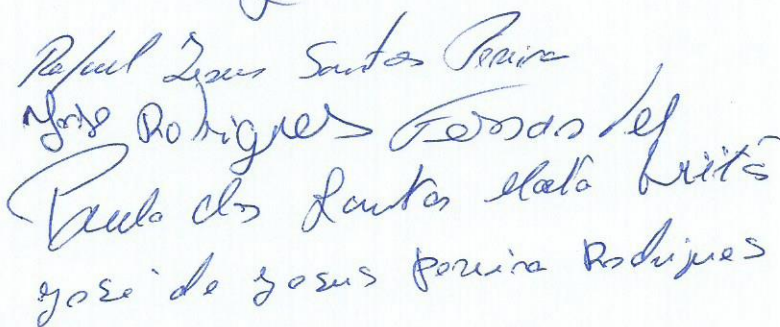 Rafael Jesus Santos Pereira
Jorge Rodrigues Fernandes
Paula dos Santos Mata
José de Jesus Pereira Rodrigues